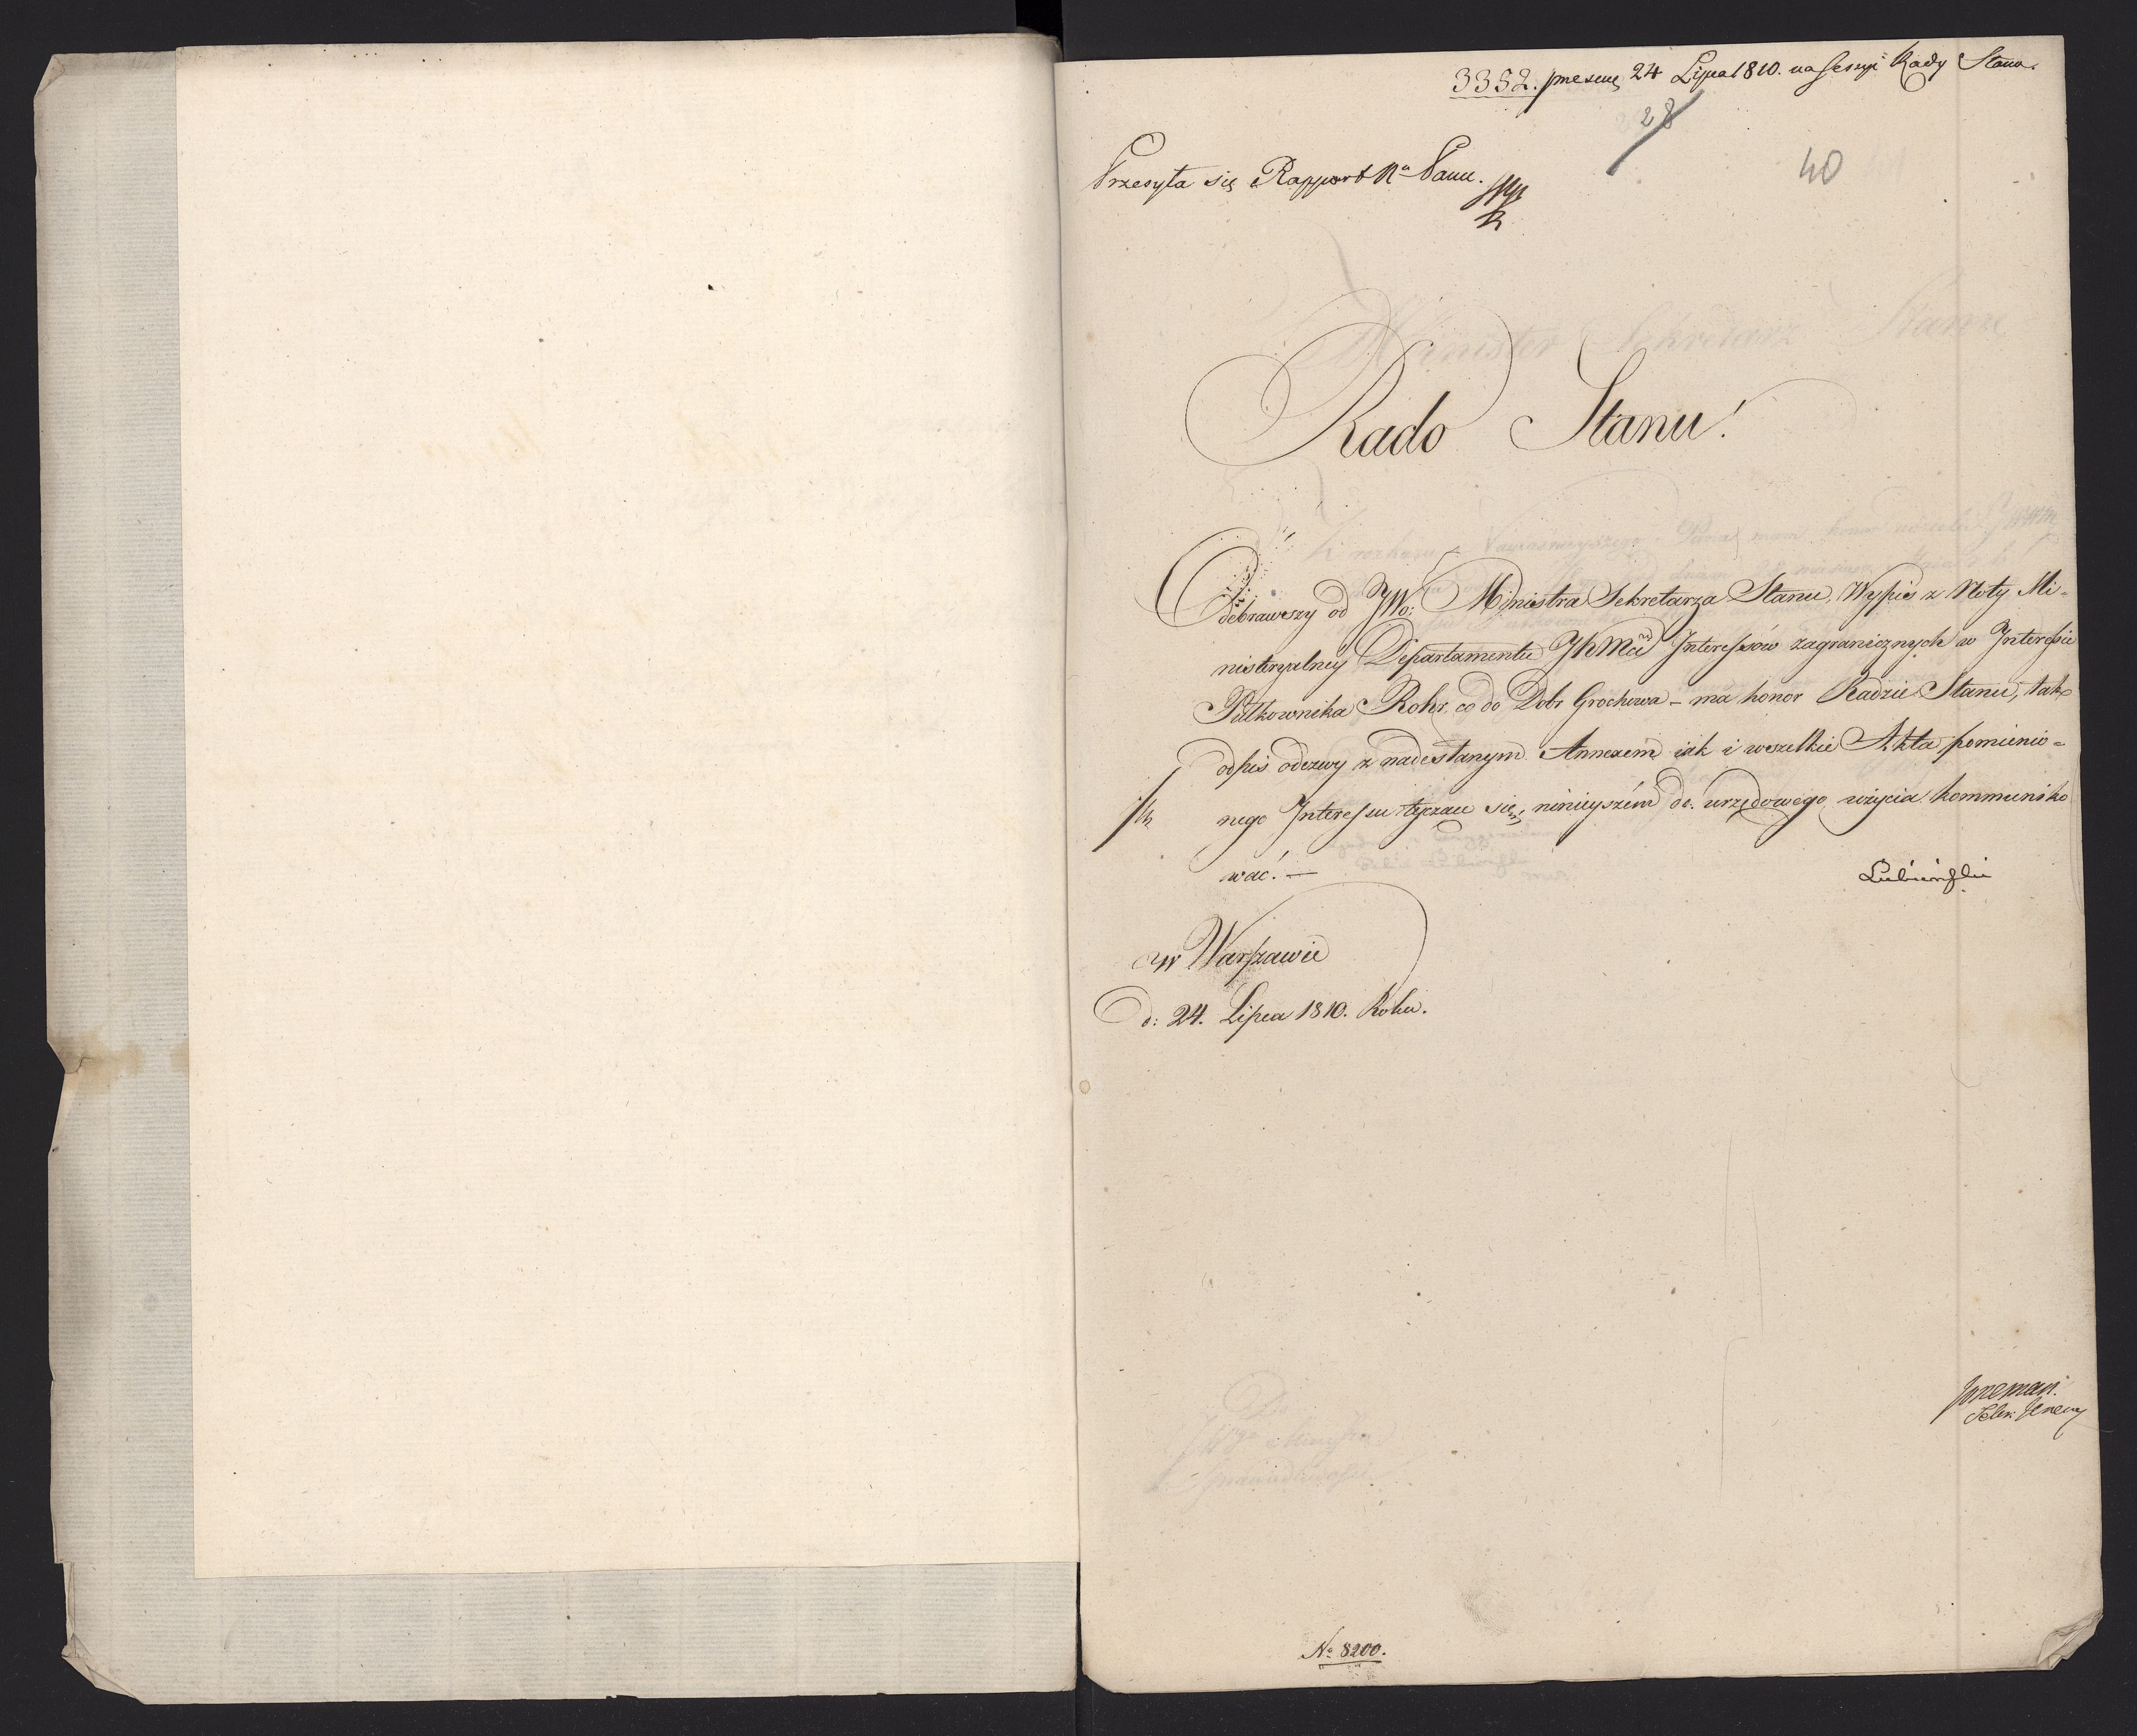 3332. 24 Lipca 1810. na Sessyi Rady Stanu.
28
40
Przesyła się Rapport Nu Panu.
Rado Stanu!
Odebrawszy od JWo: Ministra Sekretarza Stanu, Wypis z Noty Mi-
nistryalney Departamentu JKMci Interessów zagranicznych w Interessie
Pułkownika Rohr, co do Dobr Grochowa - ma honor Radzie Stanu, tak
odpis odezwy z nadesłanym Annexem iak i wszelkie Akta pomienio-
nego Interessu tyczące się, ninieyszém do urzędowego użycia kommuniko
wać. —
Lubieński
w Warszawie
d: 24. Lipca 1810. Roku.
Sekr:
No 8200.